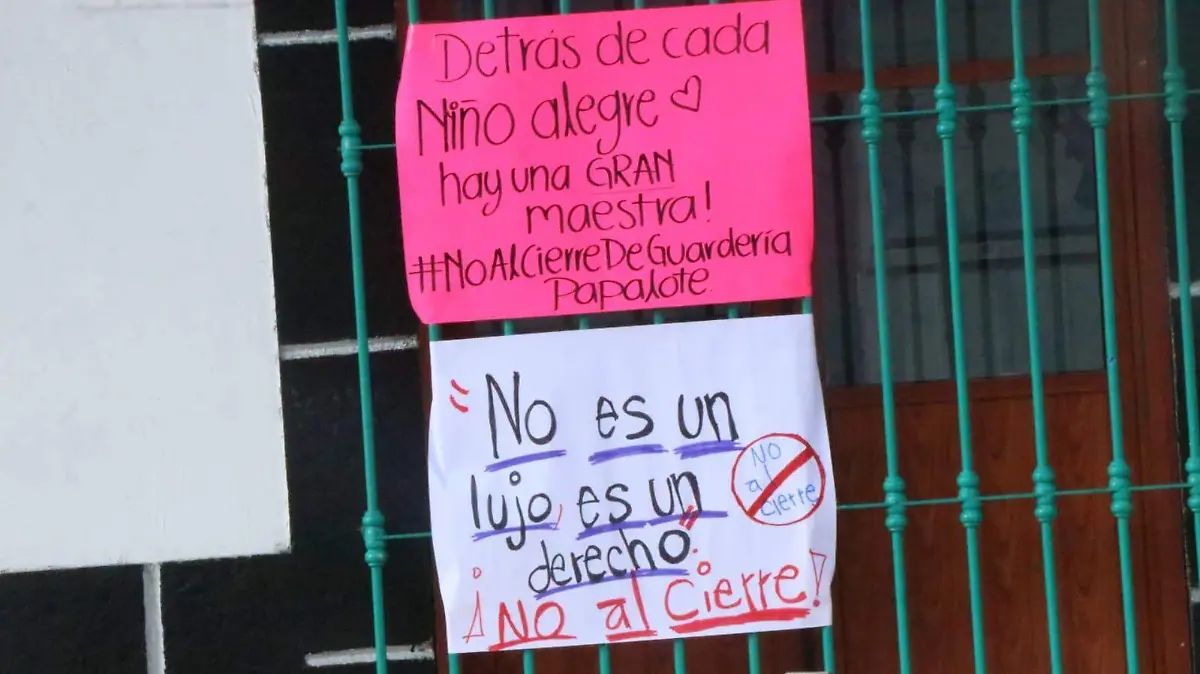 Detrás de cada
Niño alegre
hay una GRAN
maestra!
#NoAlCierreDeGuardería
Papalote
"No es un
lujo, es un
derecho".
NO
al
cierre
¡NO al cierre!